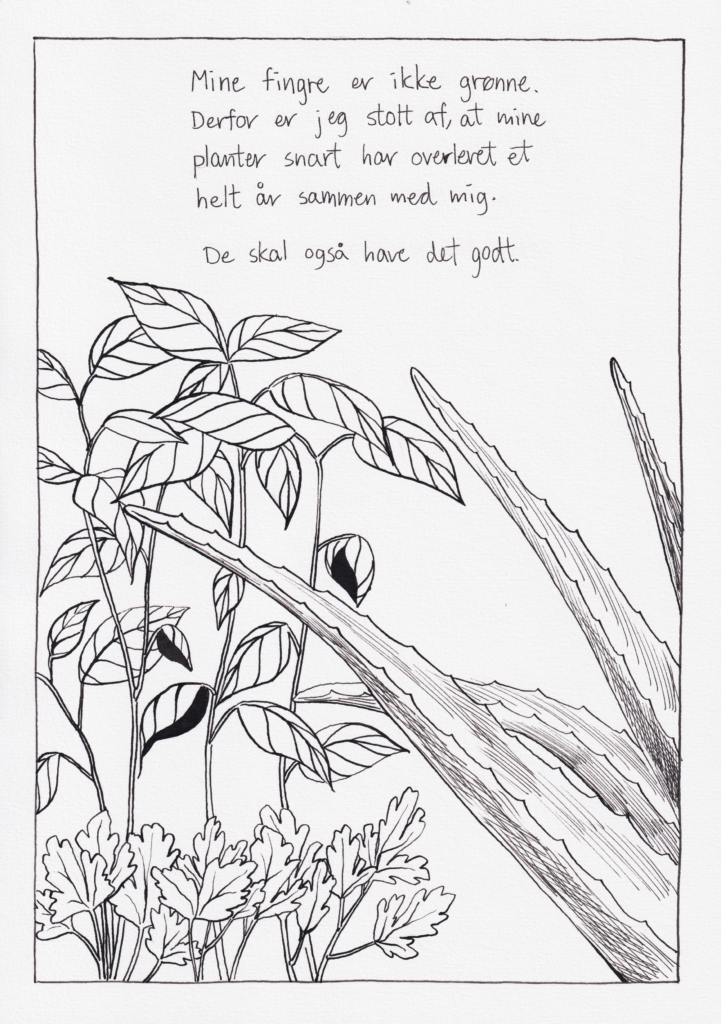 Mine fingre er ikke grønne.
Derfor er jeg stolt af, at mine
planter snart har overlevet et
helt år sammen med mig.
De skal også have det godt.